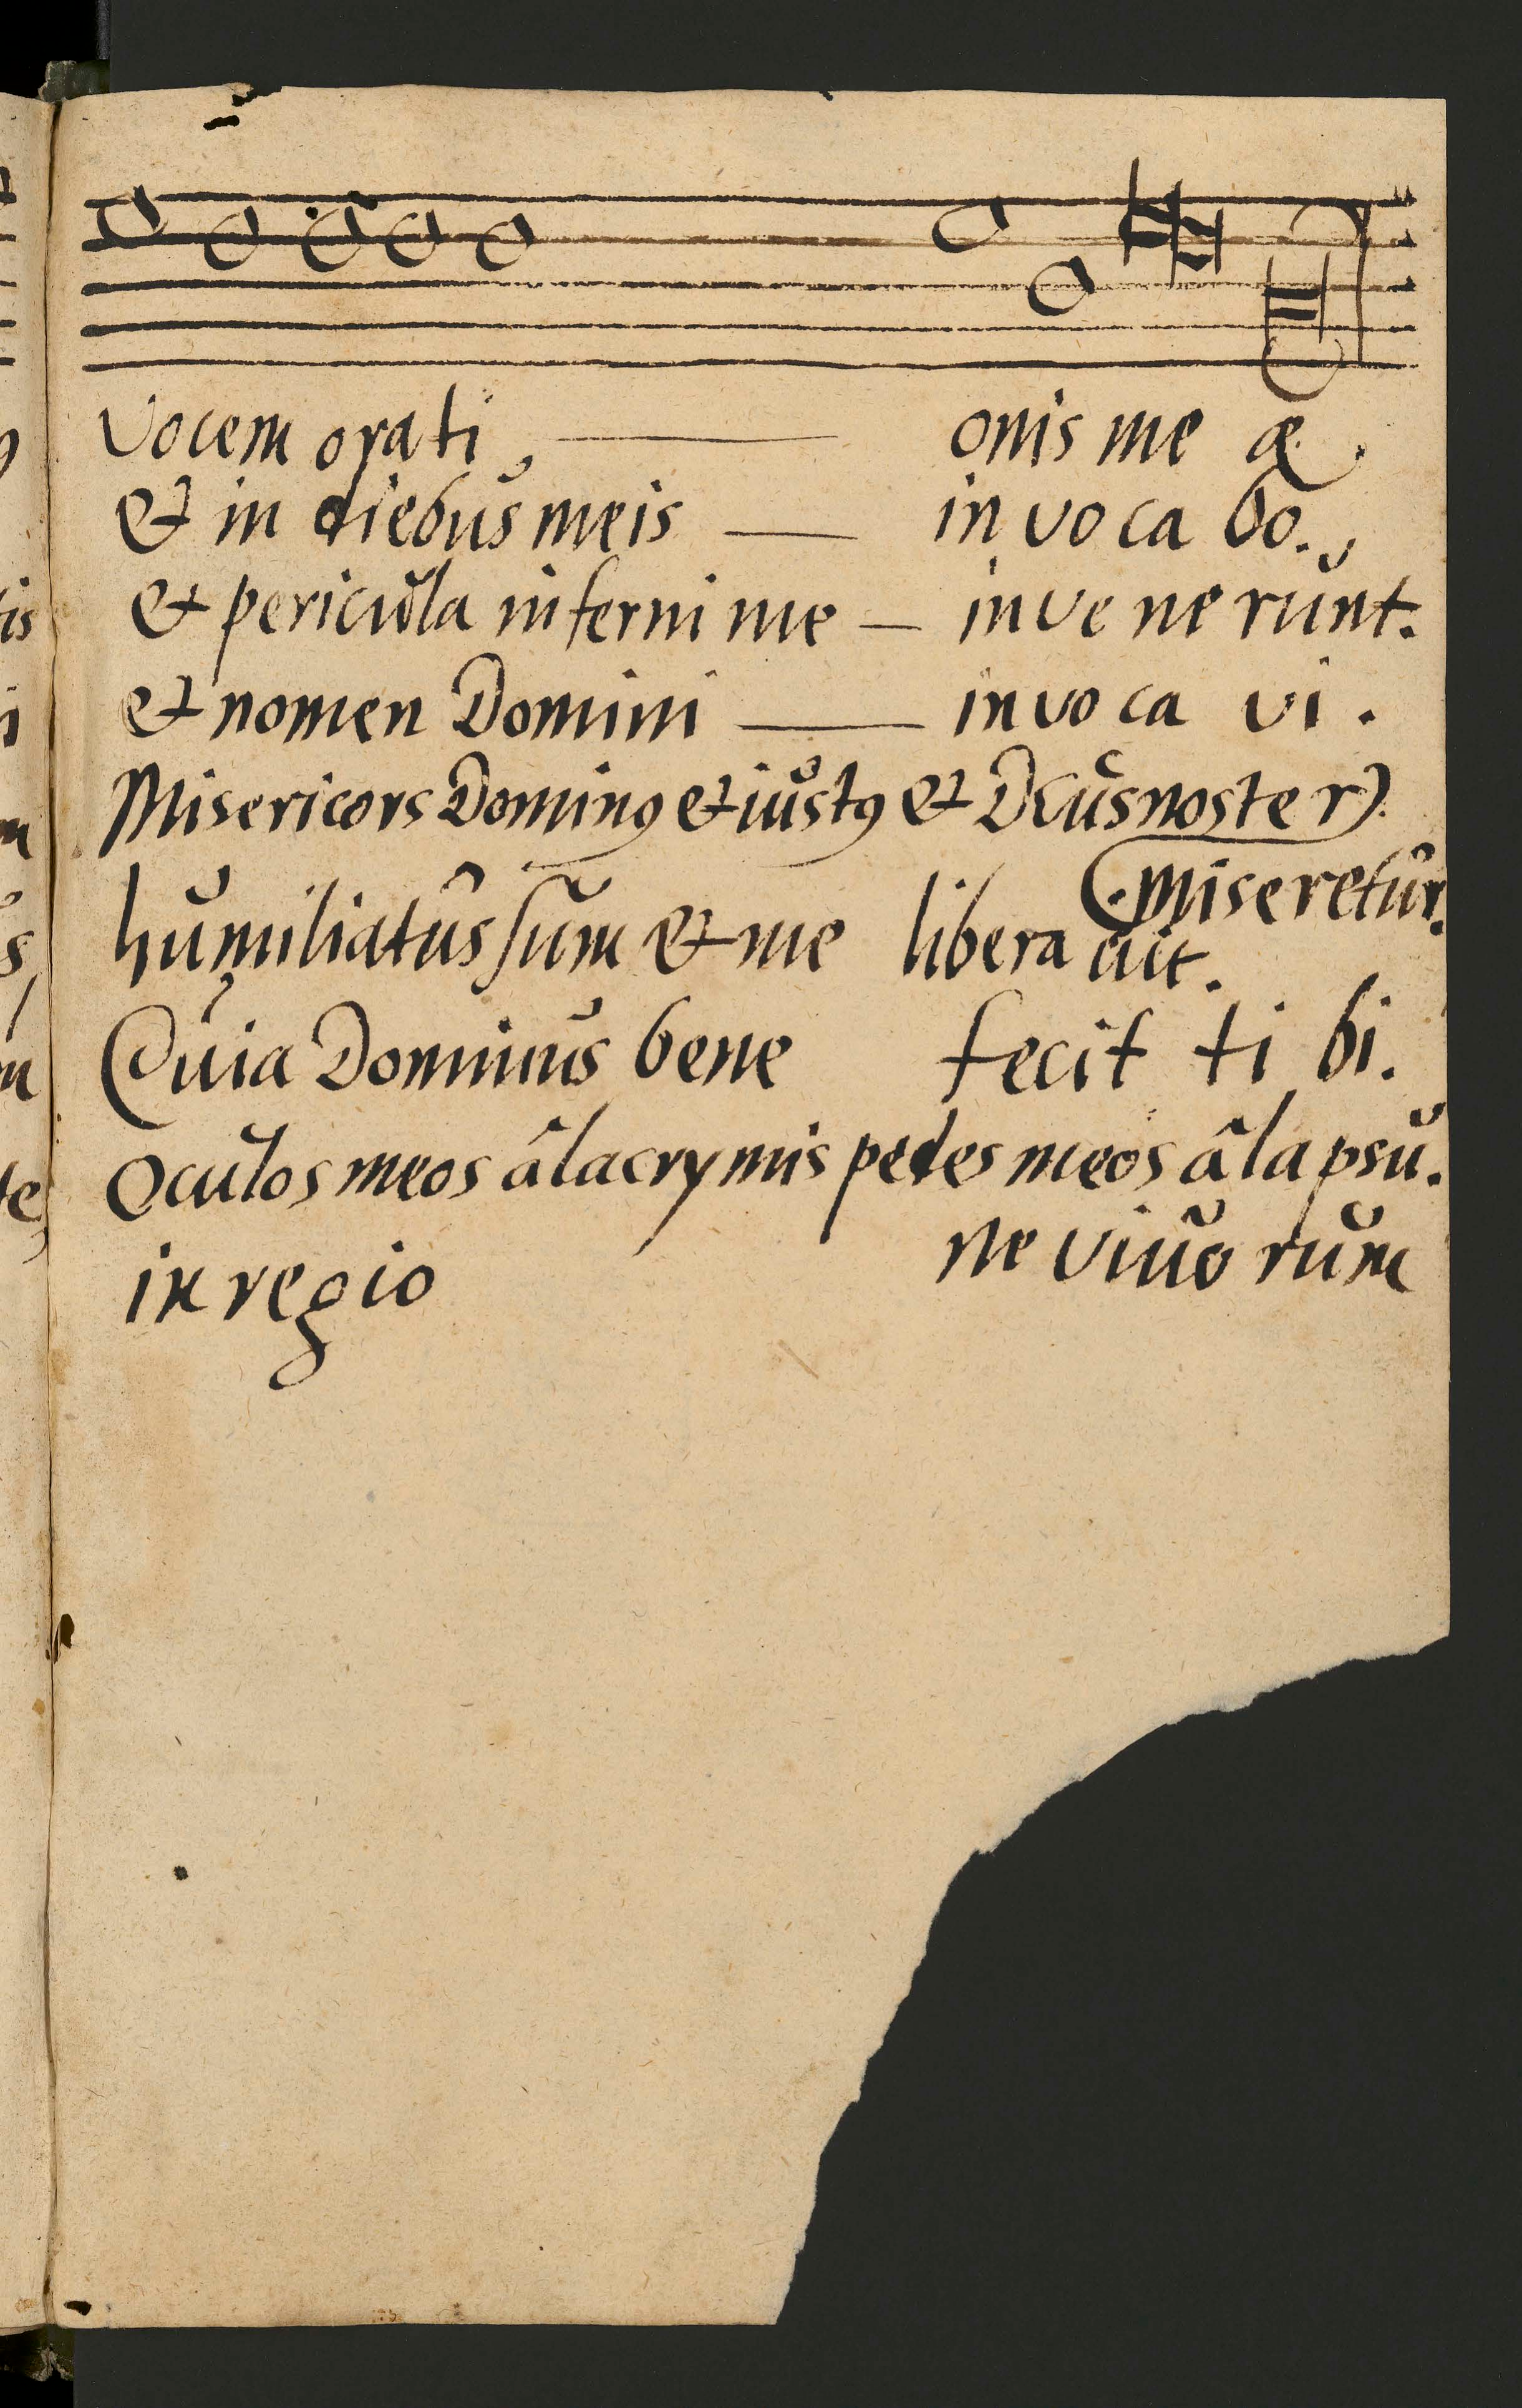 Vocem orati onis me æ.
& in diebus meis in vo ca bo.
& pericula inferni me inve ne runt.
& nomen Domini invo ca vi.
Misericors Dominꝰ & iustꝰ & Deus noster
miseretur.
humiliatus sum & me libera uit.
Quia Dominus bene fecit ti bi.
Oculos meos â lacrymis pedes meos â lapsu.
in regio ne viuo rum